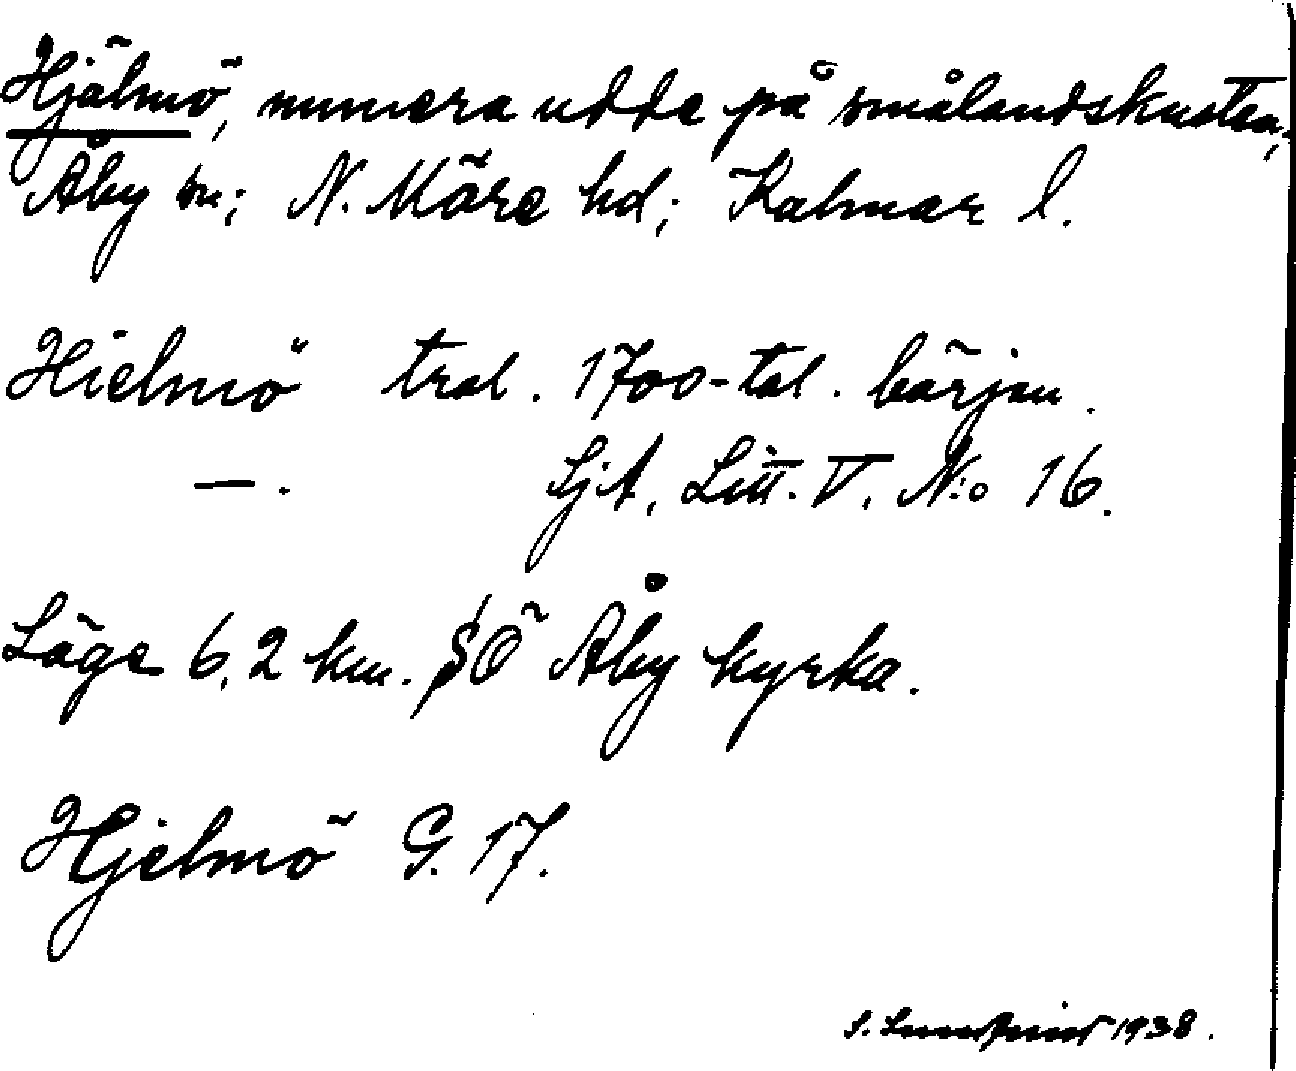 Hjälmö, numera udde på smålandskusten,
Åby sn; N. Möre hd; Kalmar l.
Hielmö trol. 1700-tal. börjän.
—. SjA, Litt. V, N:o 16.
Läge 6,2 km. SÖ Åby kyrka.
Hjelmö G. 17.
S. Lundqvist 1938.